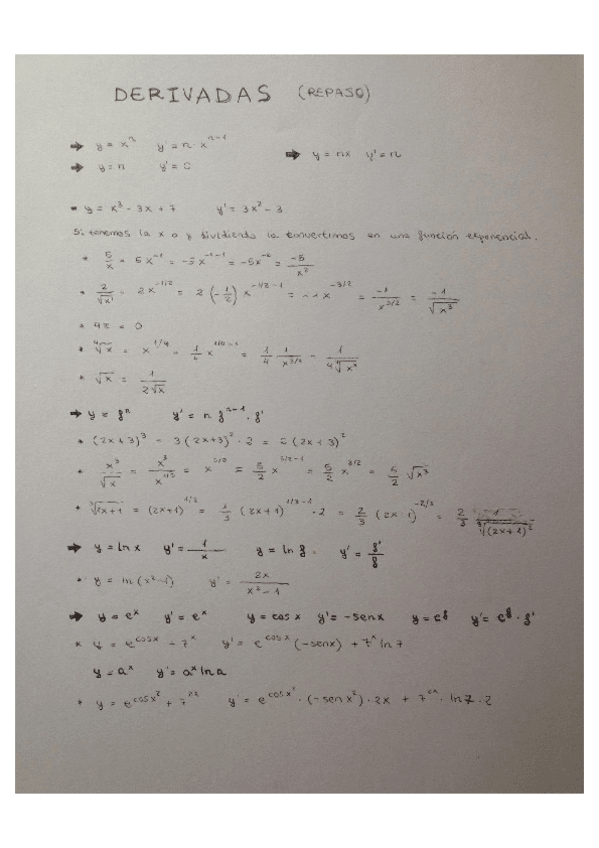 DERIVADAS (REPASO)
→ y = xⁿ y' = n·xⁿ⁻¹ → y = nx y' = n
→ y = n y' = 0
• y = x³ - 3x + 7 y' = 3x² - 3
Si tenemos la x o y dividiendo la convertimos en una función exponencial.
• 5/x = 5x⁻¹ = -5x⁻¹⁻¹ = -5x⁻² = -5/x²
• 2/√x = 2x^(-1/2) = 2(-1/2)x^(-1/2-1) = -1x^(-3/2) = -1/x^(3/2) = -1/√x³
• = 0
• ⁴√x = x^(1/4) = 1/4 x^(1/4-1) = 1/4 1/x^(3/4) = 1/(4 ⁴√x³)
• √x = 1/(2√x)
→ y = fⁿ y' = n fⁿ⁻¹·f'
• (2x+3)³ = 3(2x+3)²·2 = (2x+3)²
• x³/√x = = x^(5/2) = 5/2 x^(5/2-1) = 5/2 x^(3/2) = 5/2 √x³
• ³√2x+1 = (2x+1)^(1/3) = 1/3 (2x+1)^(1/3-1)·2 = 2/3 (2x+1)^(-2/3) = 2/3 1/³√(2x+1)²
→ y = ln x y' = 1/x y = ln f y' = f'/f
• y = ln(x²-1) y' = 2x/(x²-1)
→ y = eˣ y' = eˣ y = cos x y' = -sen x y = e^f y' = e^f·f'
• y = e^(cos x) + 7ˣ y' = e^(cos x)(-sen x) + 7ˣ ln 7
y = aˣ y' = aˣ ln a
• y = e^(cos x²) + 7^(2x) y' = e^(cos x²)·(-sen x²)·2x + 7^(2x)·ln 7·2